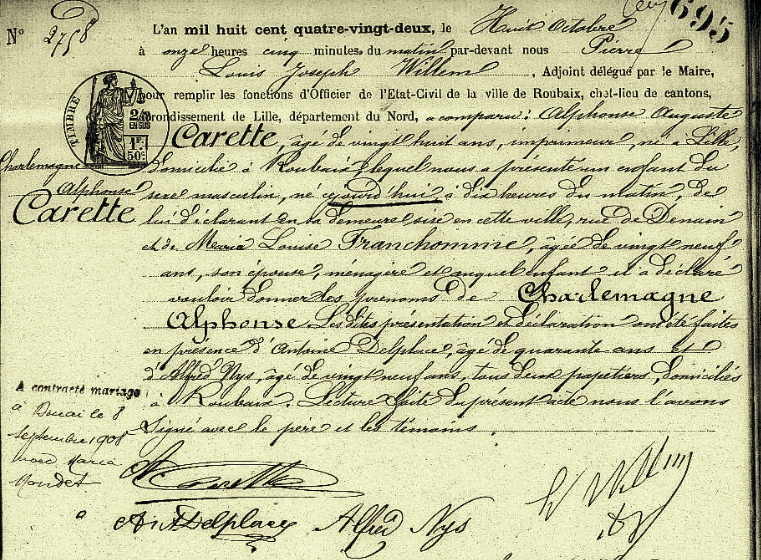 695
N° 2758
L'an mil huit cent quatre-vingt-deux, le Huit Octobre
à onze heures cinq minutes du matin par-devant nous Pierre
Louis Joseph Willem, Adjoint délégué par le Maire,
pour remplir les fonctions d'Officier de l'Etat-Civil de la ville de Roubaix, chef-lieu de cantons,
arrondissement de Lille, département du Nord, a comparu: Alphonse Auguste
Carette, âgé de vingt huit ans, imprimeur, né à Lille,
domicilié à Roubaix, lequel nous a présenté un enfant du
sexe masculin, né cejourd'hui à dix heures du matin, de
lui déclarant en sa demeure sise en cette ville, rue de Denain
et de Maria Louise Franchomme, âgée de vingt neuf
ans, son épouse, ménagère et auquel enfant il a déclaré
vouloir donner les prénoms de Charlemagne
Alphonse. Les dites présentation et déclaration ont été faites
en présence d'Antoine Delplace, âgé de quarante ans et
d'Alfred Nys, âgé de vingt neuf ans, tous deux papetiers, domiciliés
à Roubaix. Lecture faite du présent acte nous l'avons
signé avec le père et les témoins.
TIMBRE
2/10 EN SUS
1F 50c
Charlemagne
Alphonse
Carette
A contracté mariage
à Douai le 8
septembre 1908
avec Maria
A Carette
Delplace Alfred Nys
L Willem